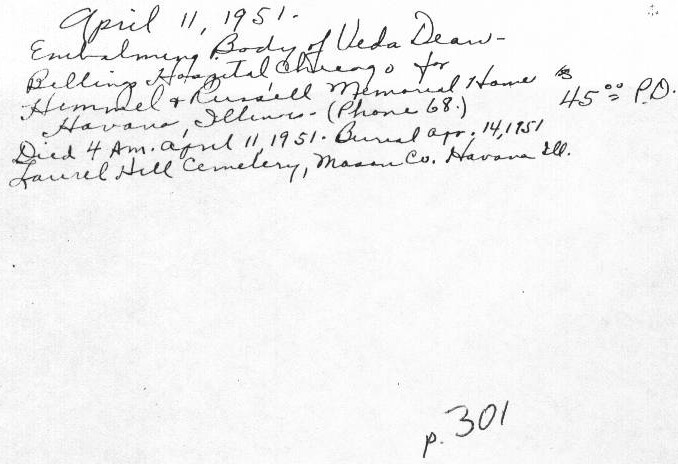 April 11, 1951.
Embalming Body of Veda Dean-
Billings Hospital Chicago for
Himmel & Russell Memorial Home
Havana, Illinois. (Phone 68.) 45.00 P.D.
Died 4 Am. April 11, 1951. Burial Apr. 14, 1951
Laurel Hill Cemetery, Mason Co. Havana Ill.
p. 301